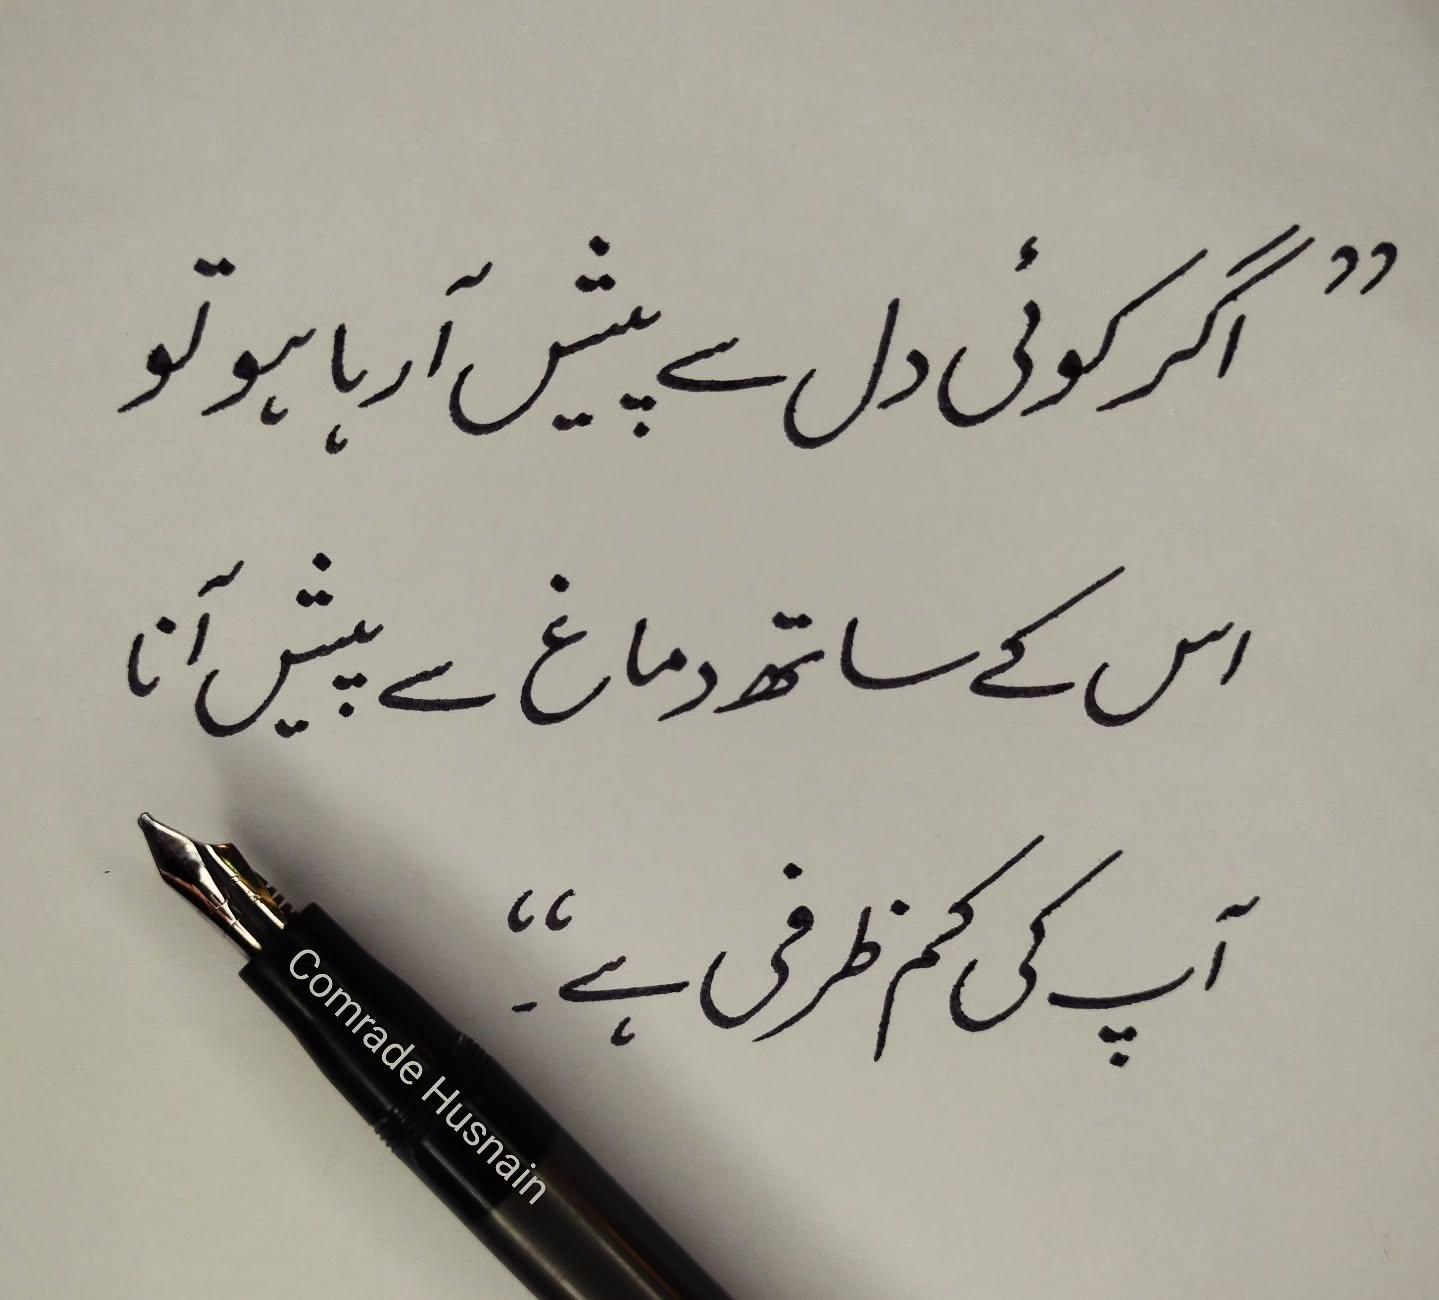 ”اگر کوئی دل سے پیش آ رہا ہو تو
اس کے ساتھ دماغ سے پیش آنا
آپ کی کم ظرفی ہے۔“
Comrade Husnain